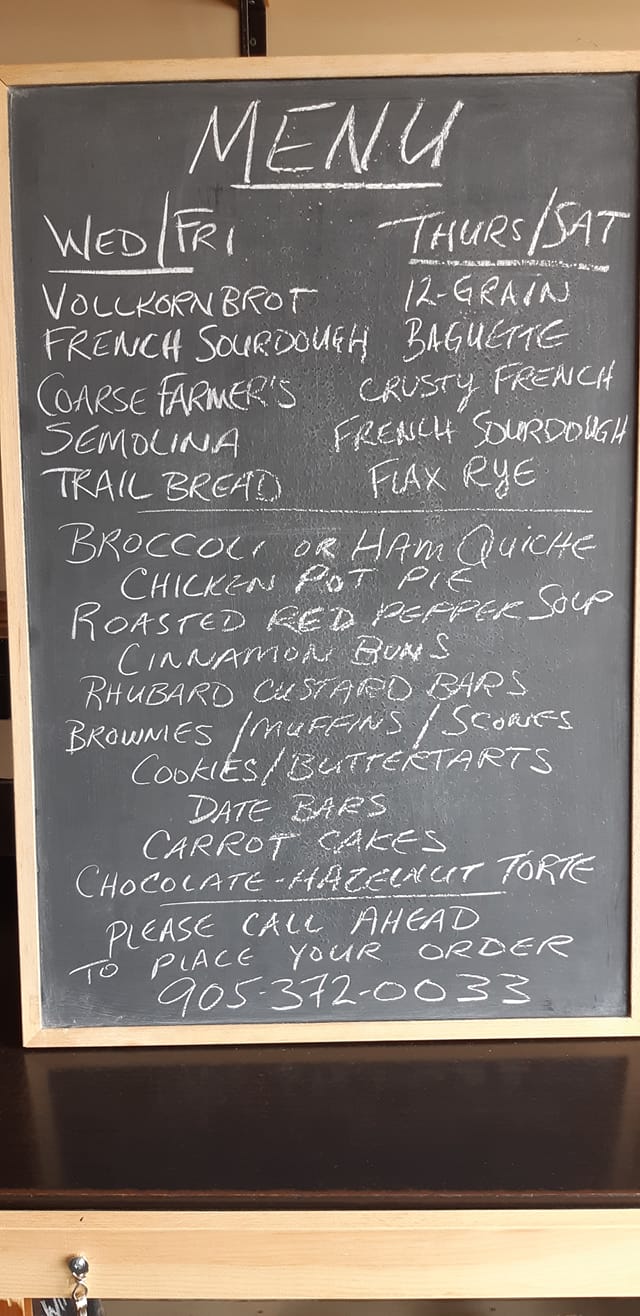 MENU
WED/FRI THURS/SAT
VOLLKORNBROT 12-GRAIN
FRENCH SOURDOUGH BAGUETTE
COARSE FARMER'S CRUSTY FRENCH
SEMOLINA FRENCH SOURDOUGH
TRAIL BREAD FLAX RYE
BROCCOLI OR HAM QUICHE
CHICKEN POT PIE
ROASTED RED PEPPER SOUP
CINNAMON BUNS
RHUBARD CUSTARD BARS
BROWNIES/MUFFINS/SCONES
COOKIES/BUTTERTARTS
DATE BARS
CARROT CAKES
CHOCOLATE-HAZELNUT TORTE
PLEASE CALL AHEAD
TO PLACE YOUR ORDER
905-372-0033